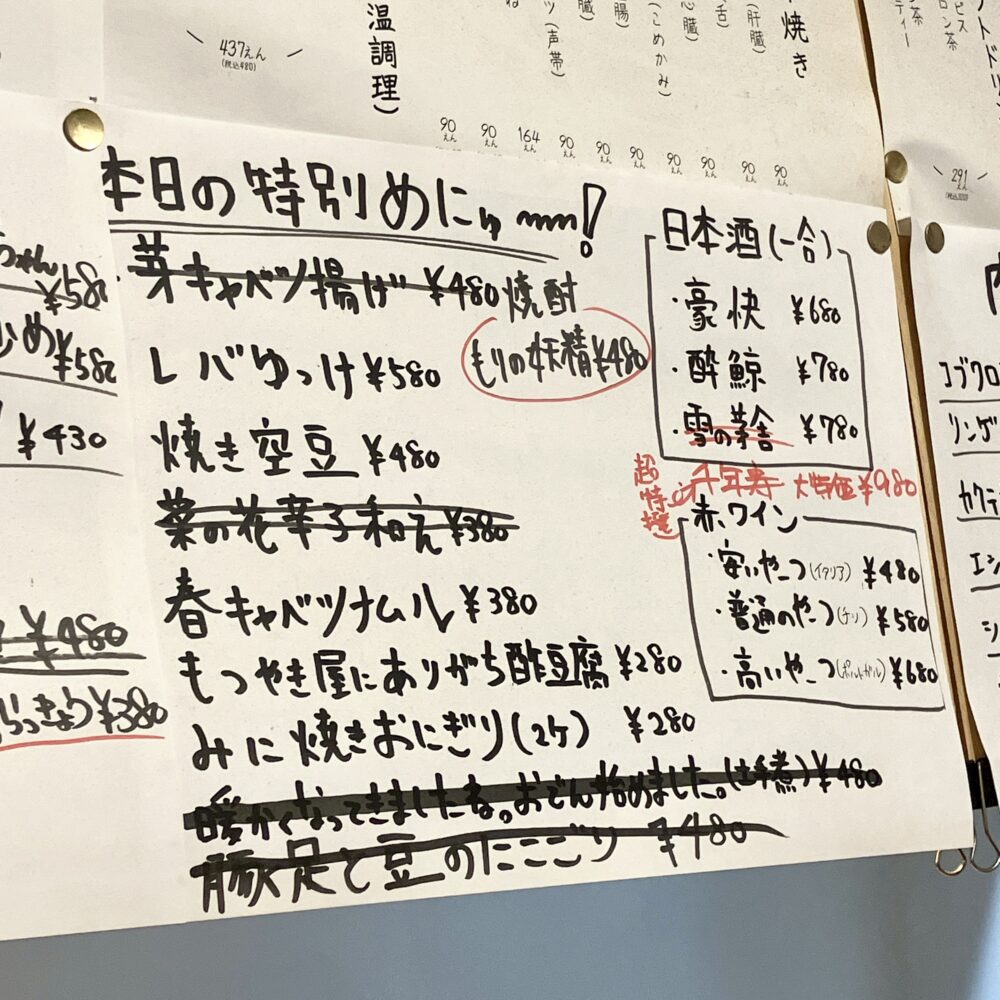 437えん
(税込480)
温調理)
(声帯)
(こめかみ)
心臓)
舌)
(肝臓)
焼き
90えん
90えん
164えん
90えん
90えん
90えん
90えん
90えん
90えん
90えん
291えん
本日の特別めにゅ〜!
・芽キャベツ揚げ ¥480
レバゆっけ ¥580
焼き空豆 ¥480
菜の花辛子和え ¥380
春キャベツナムル ¥380
もつやき屋にありがち酢豆腐 ¥280
みに焼きおにぎり(2ケ) ¥280
暖かくなってきましたね。おでん始めました。 ¥480
豚足と豆のにこごり ¥480
焼酎
もりの妖精 ¥480
日本酒(一合)
・豪快 ¥680
・酔鯨 ¥780
・雪の茅舎 ¥780
超特選
千年寿 大特価 ¥980
赤ワイン
・安いやつ(イタリア) ¥480
・普通のやつ(チリ) ¥580
・高いやつ(ポルトガル) ¥680
ちゃん
¥580
¥430
¥480
らっきょう ¥380
コブクロ
リンゲ
カクテ